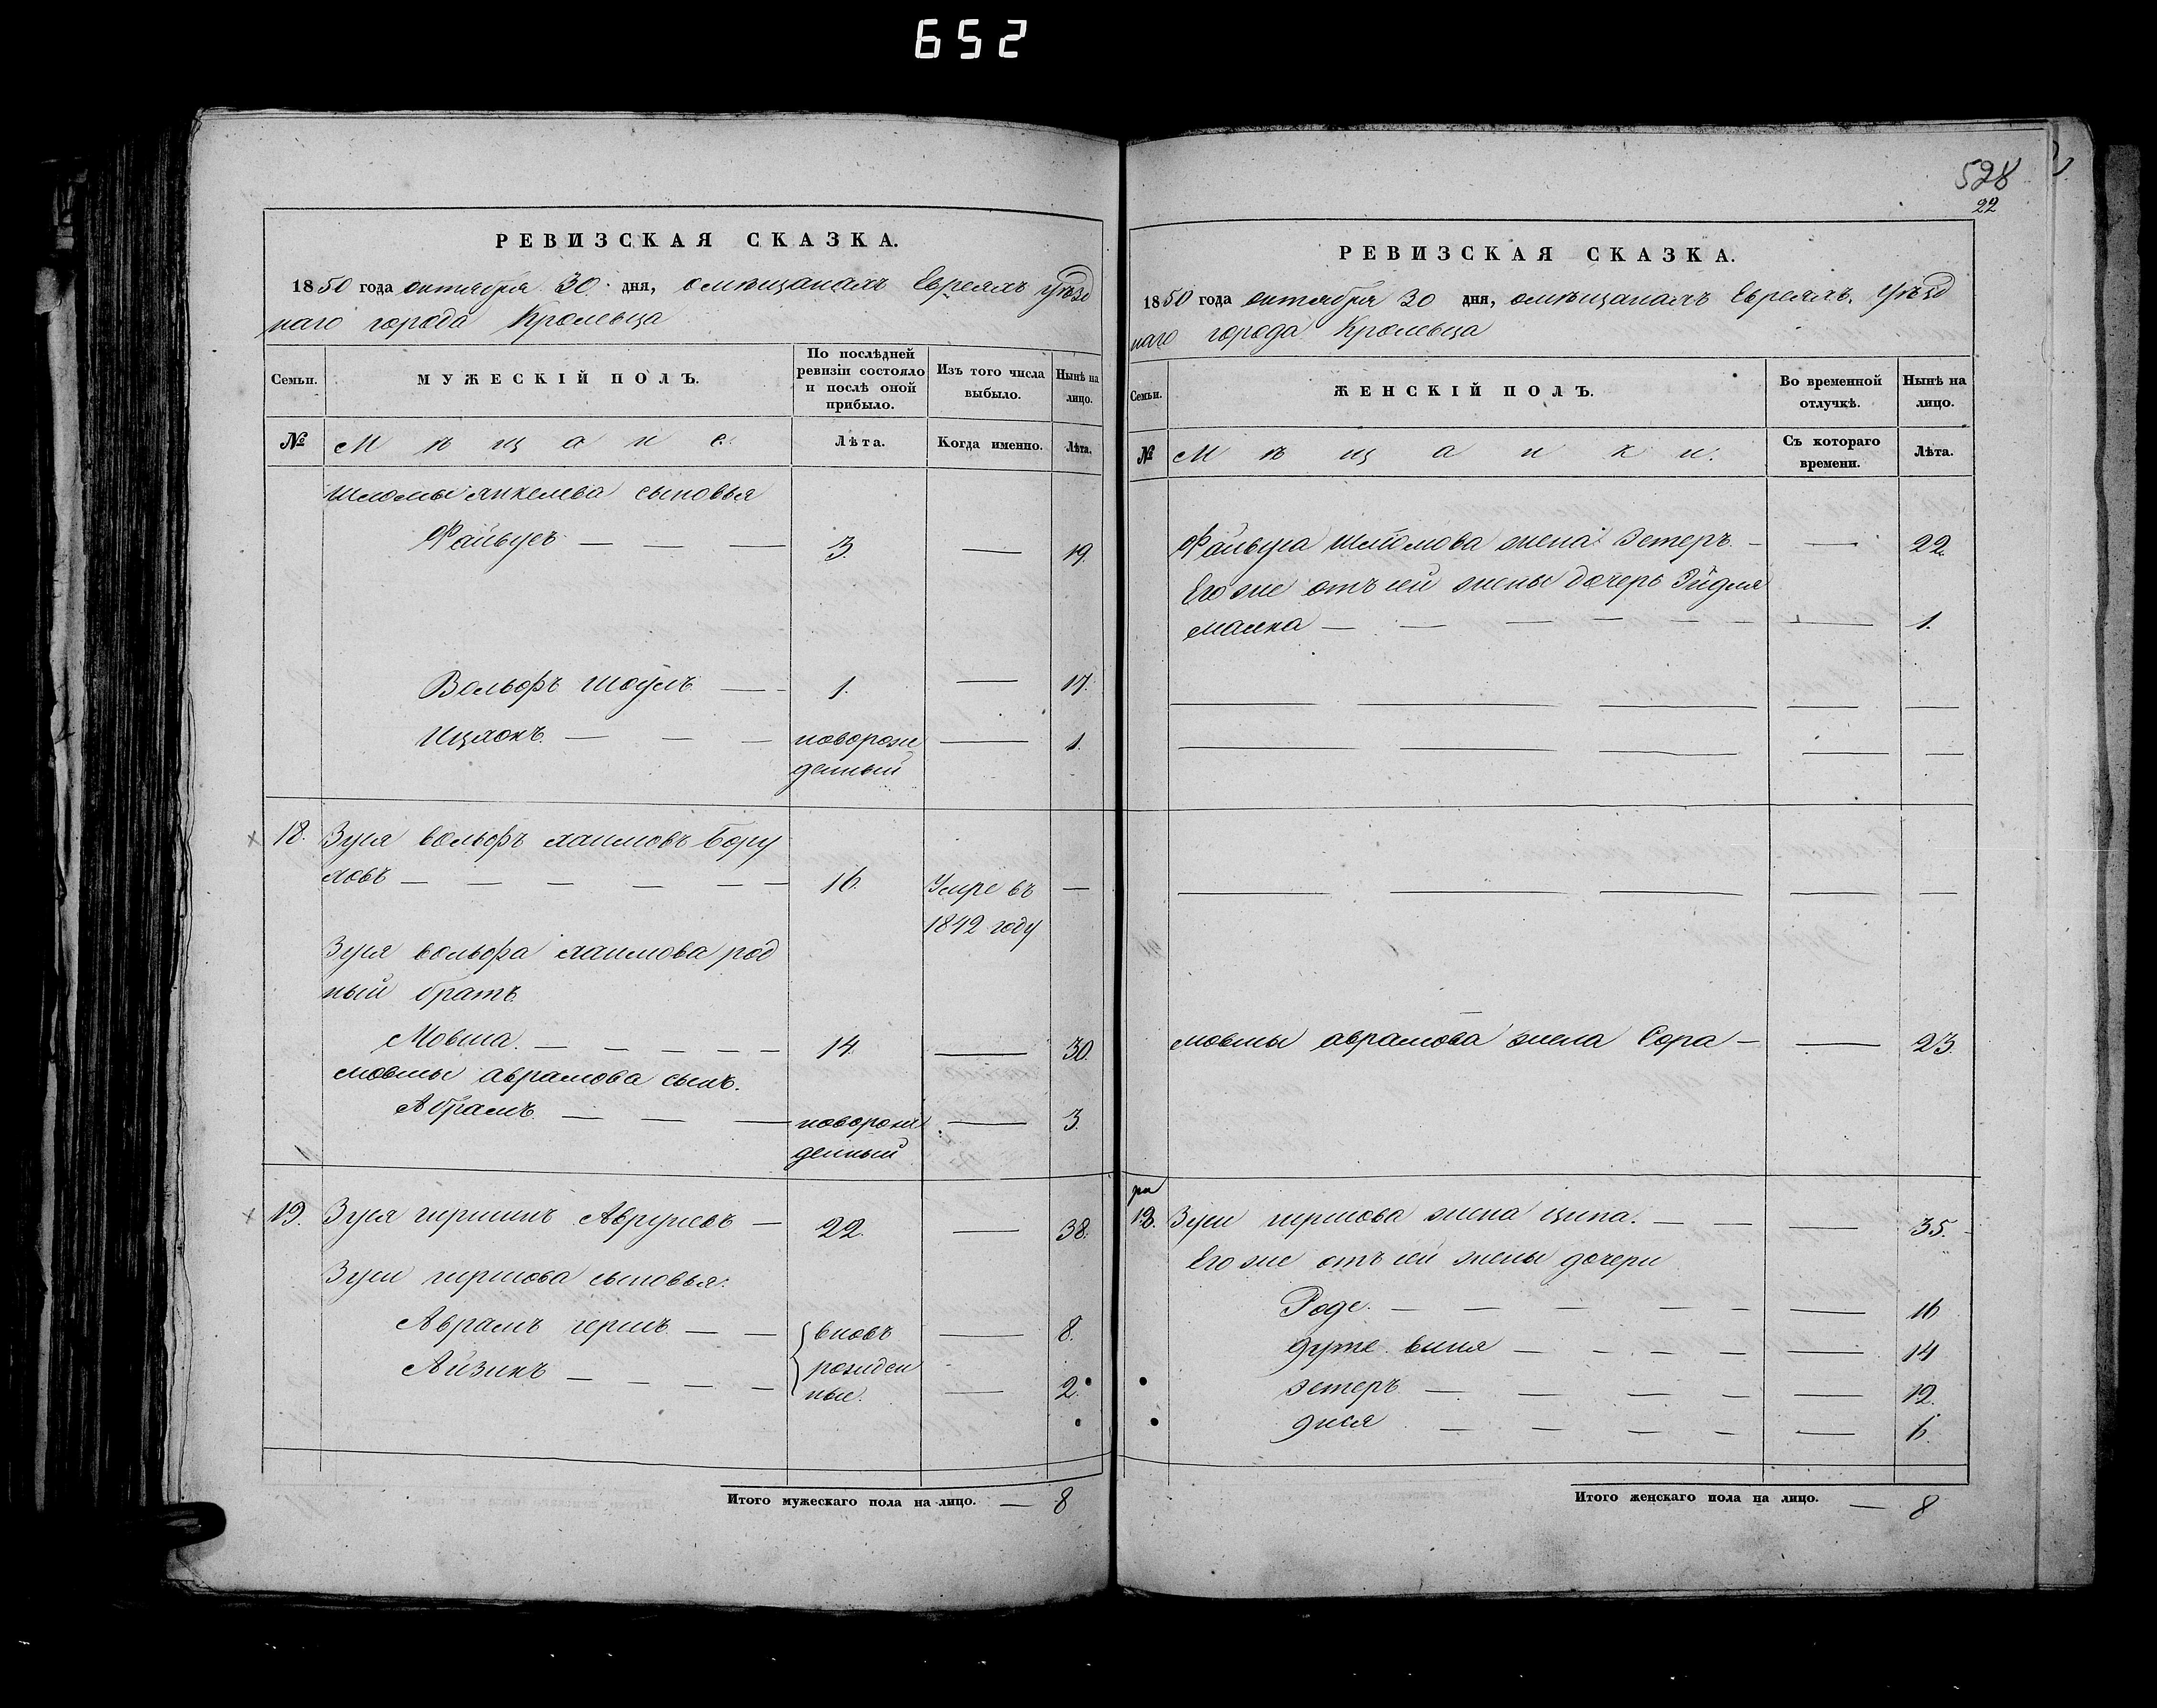 652
РЕВИЗСКАЯ СКАЗКА.
1850 года октября 30 дня, о мѣщанахъ Евреяхъ уѣзд
наго города Кролевца
Семьи.
МУЖЕСКІЙ ПОЛЪ.
По послѣдней ревизіи состояло и послѣ оной прибыло.
Изъ того числа выбыло.
Нынѣ на лицо.
№
Мѣщане.
Лѣта.
Когда именно.
Лѣта.
Шломы янкелева сыновья
Файвусъ — — — 3. — 19.
Вольфъ шоулъ — - 1. — 17.
Ицхокъ — — — новорож — 1.
денный
18. Зуся вольфъ хаимовъ бору
ховъ — — — — — — 16. Умре въ —
1842 году
Зуся вольфа хаимова род
ный братъ
Мовша. — — — — — 14. — 30.
мовши аврамова сынъ.
Абрамъ — — — новорож — 3.
денный
19. Зуся гиршинъ — 22. — 38.
Зуси гиршова сыновья:
Аврамъ герш — — вновь — 8.
Айзикъ — — — — рожден
ные. — 2.
Итого мужескаго пола на лицо. — 8
528
22
РЕВИЗСКАЯ СКАЗКА.
1850 года октября 30 дня, о мѣщанахъ Евреяхъ. Уѣзд
наго города Кролевца
Семьи.
ЖЕНСКІЙ ПОЛЪ.
Во временной отлучкѣ.
Нынѣ на лицо.
№
Мѣщанки.
Съ котораго времени.
Лѣта.
Файвуса шломова жена Эстеръ — — 22.
Его же отъ сей жены дочерь Эйдля
малка — — — — — — — 1.
мовши аврамова жена Сора — — 23.
19. Зуси гиршова жена ципа. — — — 35.
Его же отъ сей жены дочери
Роде. — — — — — — 16
— — — — — 14
эстеръ — — — — — 12.
— — — — — 6.
Итого женскаго пола на лицо. — 8